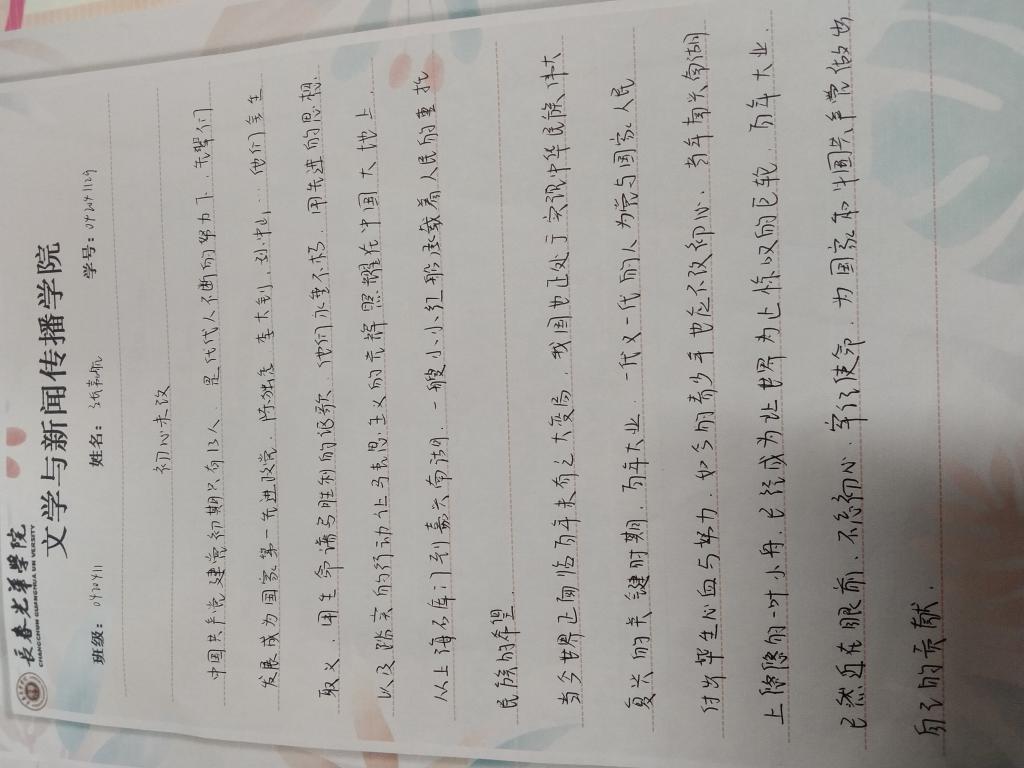 長春光華學院
CHANGCHUN GUANGHUA UNIVERSITY
文学与新闻传播学院
班级：0922411 姓名： 学号：092241129
初心未改
中国共产党建党初期只有13人，是代代人不断的努力下，先辈们
发展成为国家第一先进政党，陈独秀、李大钊、刘仲甫...他们舍生
取义，用生命谱写胜利的的讴歌，他们永垂不朽，用先进的思想
以及踏实的行动让马克思主义的光辉照耀在中国大地上，
从上海石库门到嘉兴南湖，一艘小小红船承载着人民的重托
民族的希望。
当今世界正面临百年未有之大变局，我国也正处于实现中华民族伟大
复兴的关键时期，百年大业，一代又一代的人为党与国家人民
付出毕生心血与努力，如今的青少年也应不改初心，当年嘉兴南湖
上的一叶小舟，已经成为让世界为止惊叹的巨轮，百年大业，
已然近在眼前，不忘初心，牢记使命，为国家和中国共产党做出
自己的贡献。